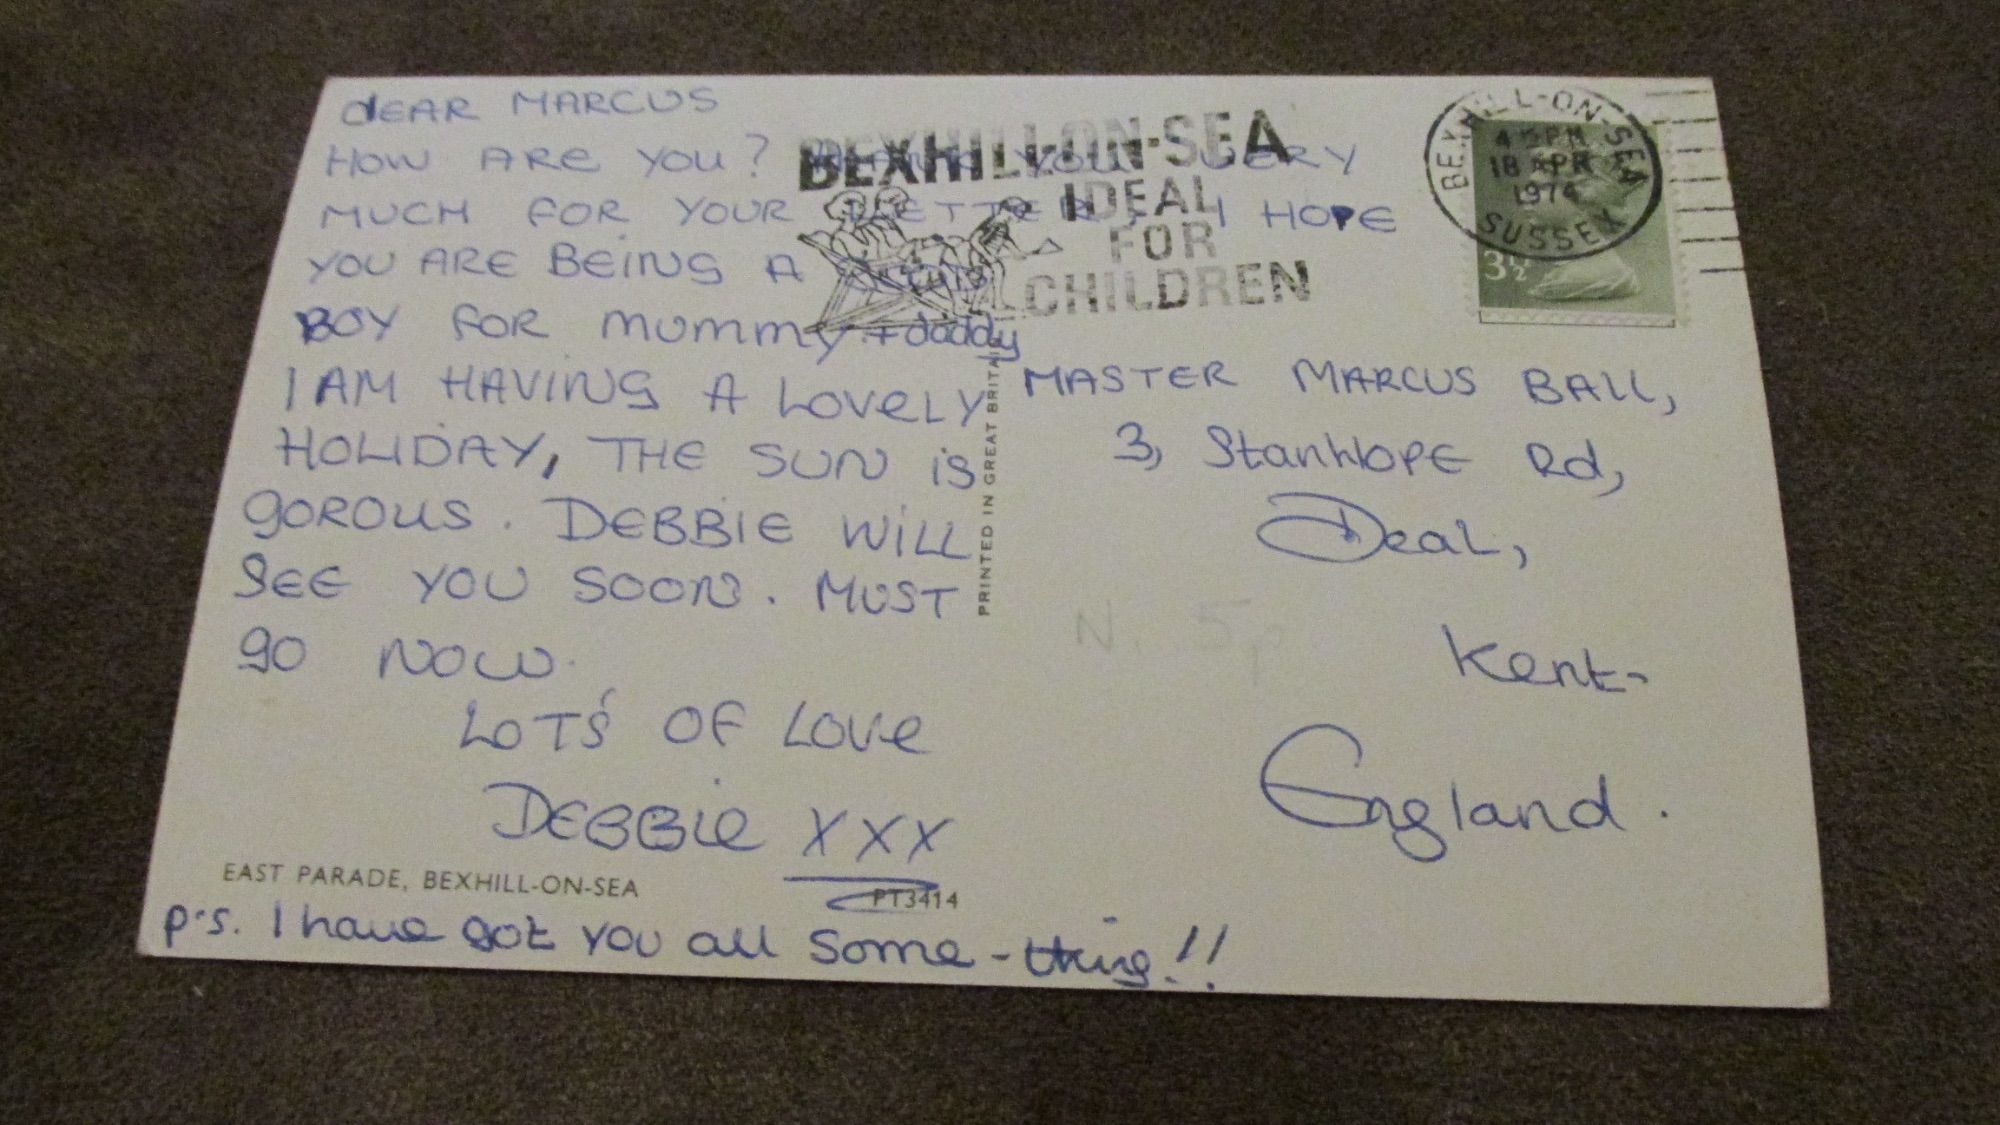 dEAR MARCUS
HOW ARE YOU? THANK YOU VERY
MUCH FOR YOUR LETTER, I HOPE
YOU ARE BEING A
BOY FOR mummy + daddy
I AM HAVING A LOVELY
HOLIDAY, THE SUN is
gOROUS. DEBBIE WILL
SEE YOU SOON. MUST
go NOW.
LOTS OF LOVE
DEBBIE XXX
EAST PARADE, BEXHILL-ON-SEA
PT3414
p.s. I have got you all some-thing!!
PRINTED IN GREAT BRITAIN
BEXHILL-ON-SEA
IDEAL
FOR
CHILDREN
BEXHILL-ON-SEA
PM
18 APR
1974
SUSSEX
3½
MASTER MARCUS BALL,
3, StanhopE Rd,
Deal,
Kent-
England.
N. 5p